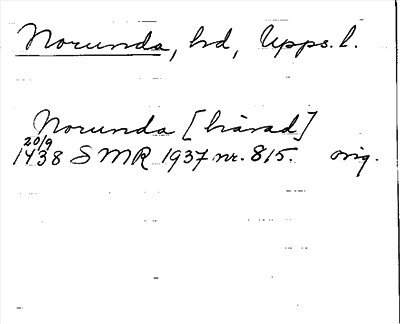 Norunda, hd, Upps. l.
Norunda [härad]
20/9
1438 SMR 1937 nr. 815. orig.